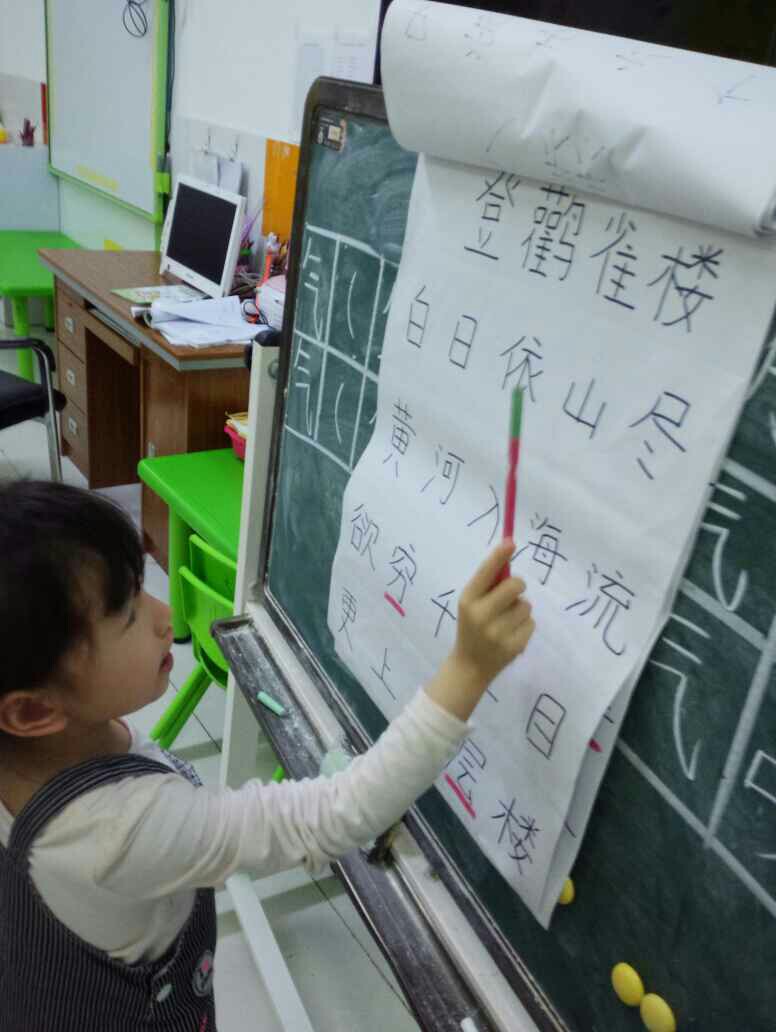 登鹳雀楼
白日依山尽
黄河入海流
欲穷千目
更上层楼
气 (
气 (
气
气